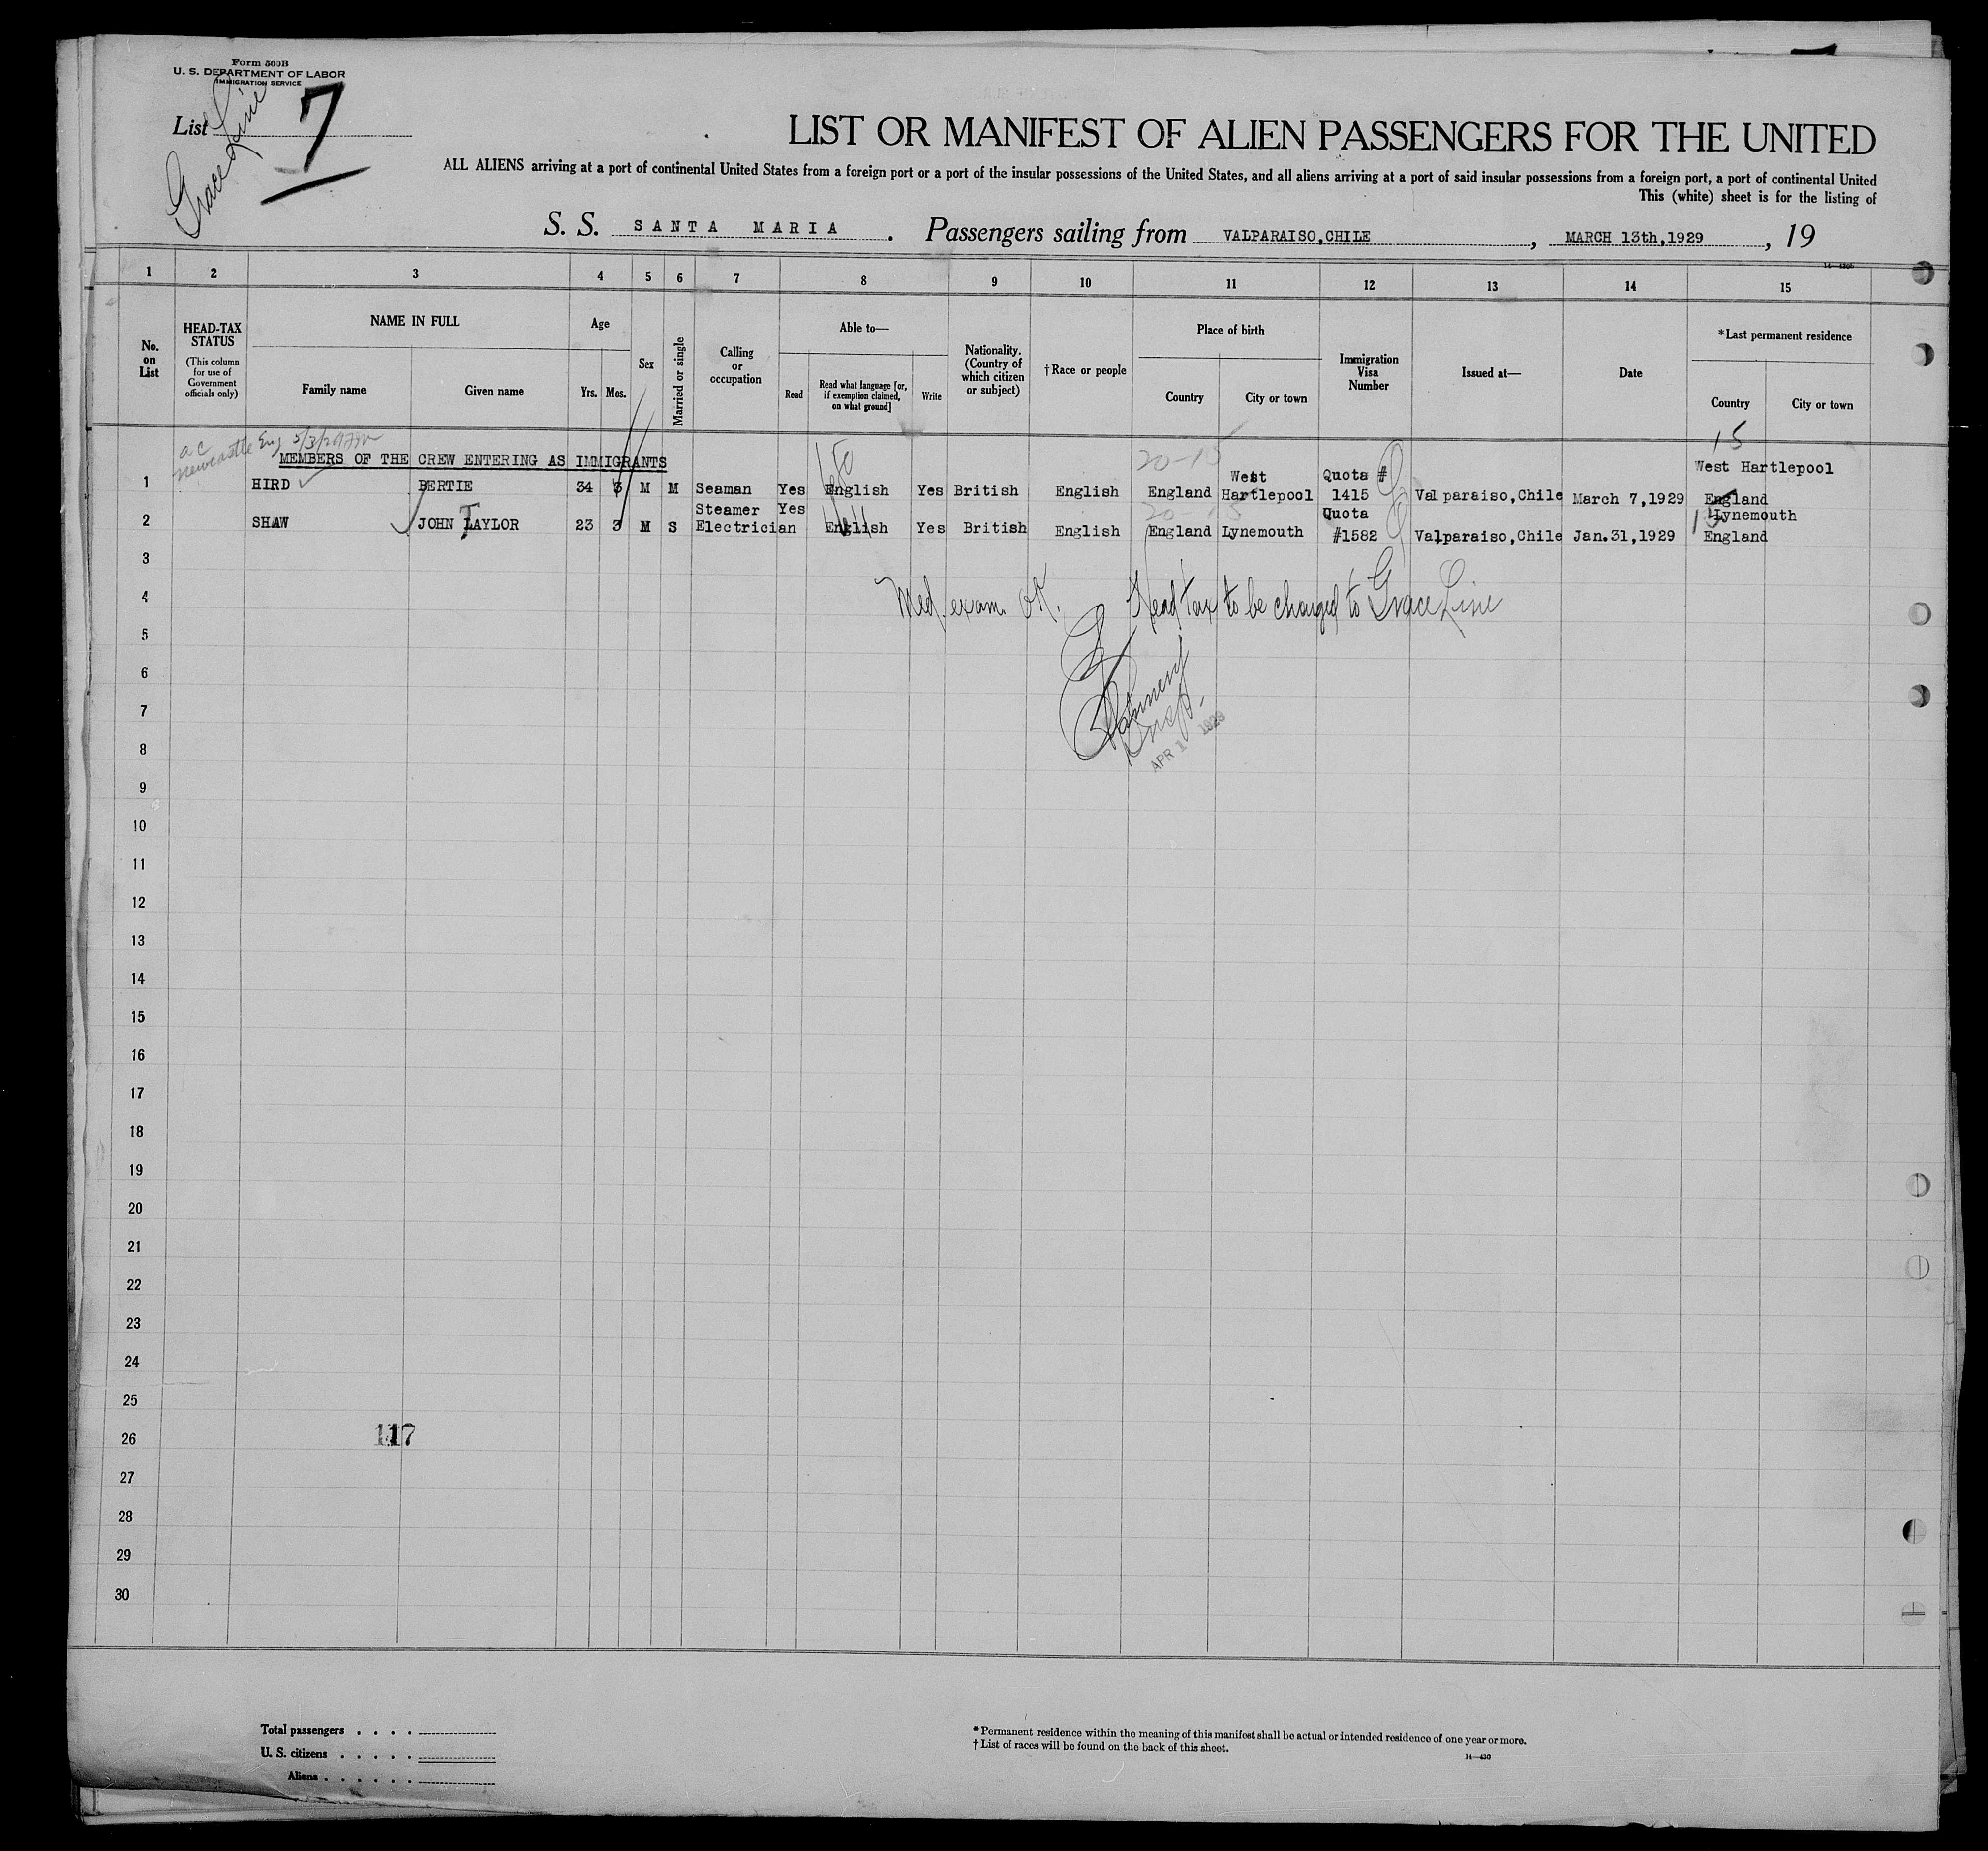 Form 500B
U. S. DEPARTMENT OF LABOR
IMMIGRATION SERVICE
List 7
Grace Line
LIST OR MANIFEST OF ALIEN PASSENGERS FOR THE UNITED
ALL ALIENS arriving at a port of continental United States from a foreign port or a port of the insular possessions of the United States, and all aliens arriving at a port of said insular possessions from a foreign port, a port of continental United
This (white) sheet is for the listing of
S. S. SANTA MARIA. Passengers sailing from VALPARAISO,CHILE, MARCH 13th,1929, 19
1 2 3 4 5 6 7 8 9 10 11 12 13 14 15
No. on List
HEAD-TAX STATUS
(This column for use of Government officials only)
NAME IN FULL
Family name
Given name
Age
Yrs. Mos.
Sex
Married or single
Calling or occupation
Able to—
Read
Read what language [or, if exemption claimed, on what ground]
Write
Nationality. (Country of which citizen or subject)
†Race or people
Place of birth
Country
City or town
Immigration Visa Number
Issued at—
Date
*Last permanent residence
Country
City or town
a c
Newcastle Eng
MEMBERS OF THE CREW ENTERING AS IMMIGRANTS
20-15
15
1 HIRD BERTIE 34 3 M M Seaman Yes English Yes British English England West Hartlepool Quota # 1415 Valparaiso,Chile March 7,1929 West Hartlepool England
2 SHAW JOHN TAYLOR 23 3 M S Steamer Electrician Yes English Yes British English England Lynemouth Quota #1582 Valparaiso,Chile Jan.31,1929 Lynemouth England
20-15
15
3
4
Med. exam. OK. Head tax to be charged to Grace Line
5
6
7
Insp.
8
APR 1 1929
9
10
11
12
13
14
15
16
17
18
19
20
21
22
23
24
25
26
117
27
28
29
30
Total passengers . . . .
U. S. citizens . . . . .
Aliens . . . . . .
* Permanent residence within the meaning of this manifest shall be actual or intended residence of one year or more.
† List of races will be found on the back of this sheet.
14—430